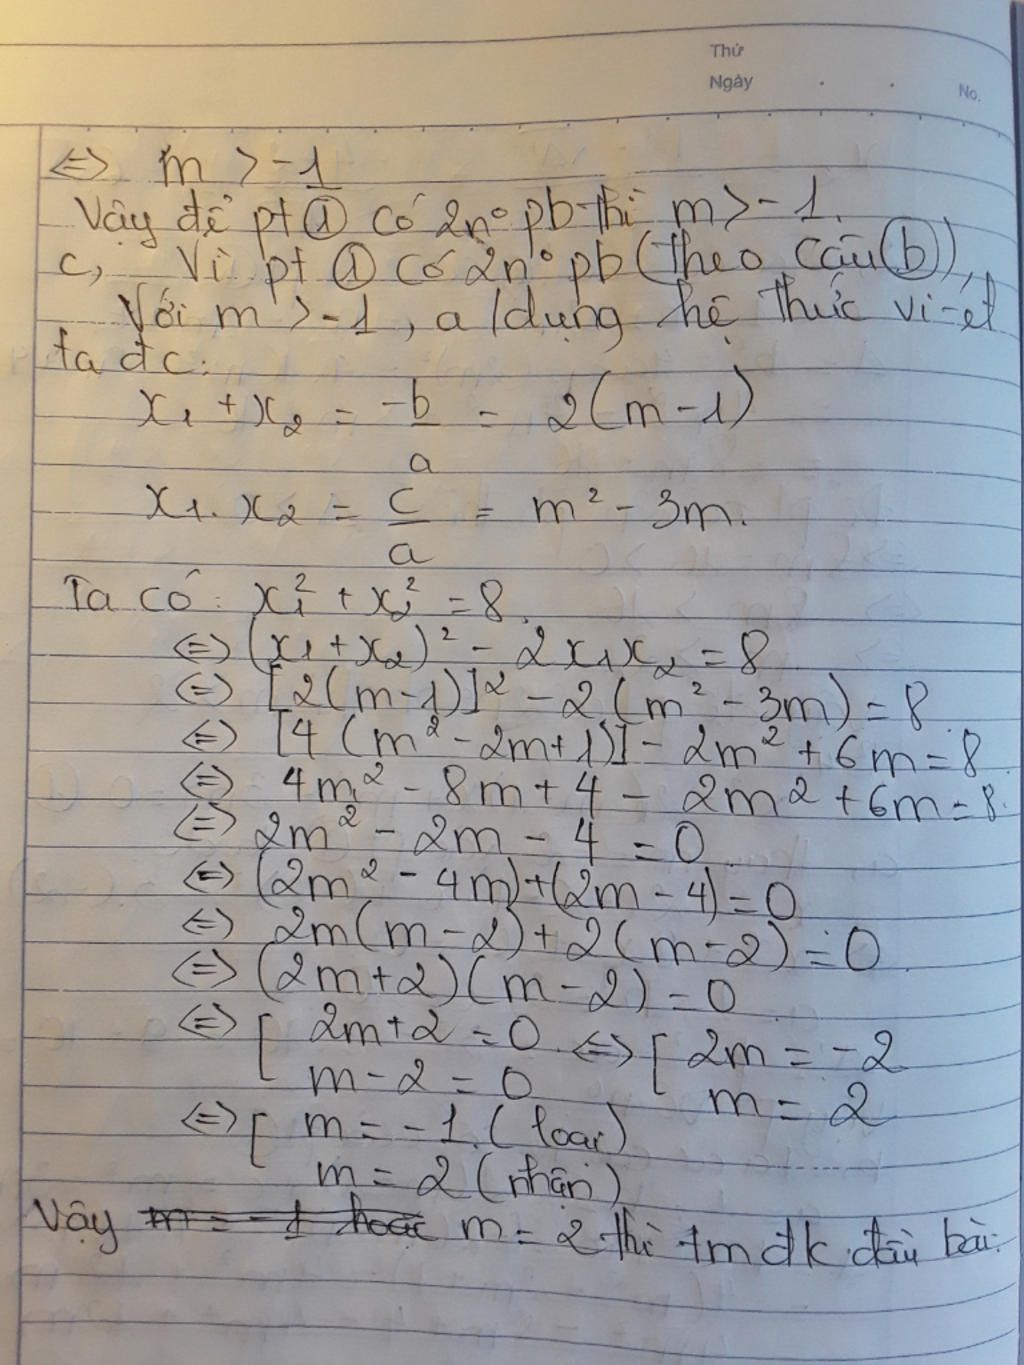 Thứ
Ngày . . No.
<=> m > -1
Vậy để pt ① có 2n° pb thì m > -1.
c, Vì pt ① có 2n° pb (theo câu ⓑ),
Với m > -1, a/dụng hệ thức vi-et
ta đc:
x₁ + x₂ = -b/a = 2(m-1)
x₁. x₂ = c/a = m² - 3m.
Ta có: x₁² + x₂² = 8.
<=> (x₁ + x₂)² - 2x₁x₂ = 8
<=> [2(m-1)]² - 2(m² - 3m) = 8
<=> [4(m² - 2m+1)] - 2m² + 6m = 8
<=> 4m² - 8m + 4 - 2m² + 6m = 8.
<=> 2m² - 2m - 4 = 0
<=> (2m² - 4m)+(2m - 4) = 0
<=> 2m(m-2) + 2(m-2) = 0
<=> (2m+2)(m-2) = 0
<=> [ 2m+2 = 0 <=> [ 2m = -2
m - 2 = 0 m = 2
<=> [ m = -1. (loại)
m = 2 (nhận)
Vậy m = -1 hoặc m = 2 thì tmđk đầu bài.